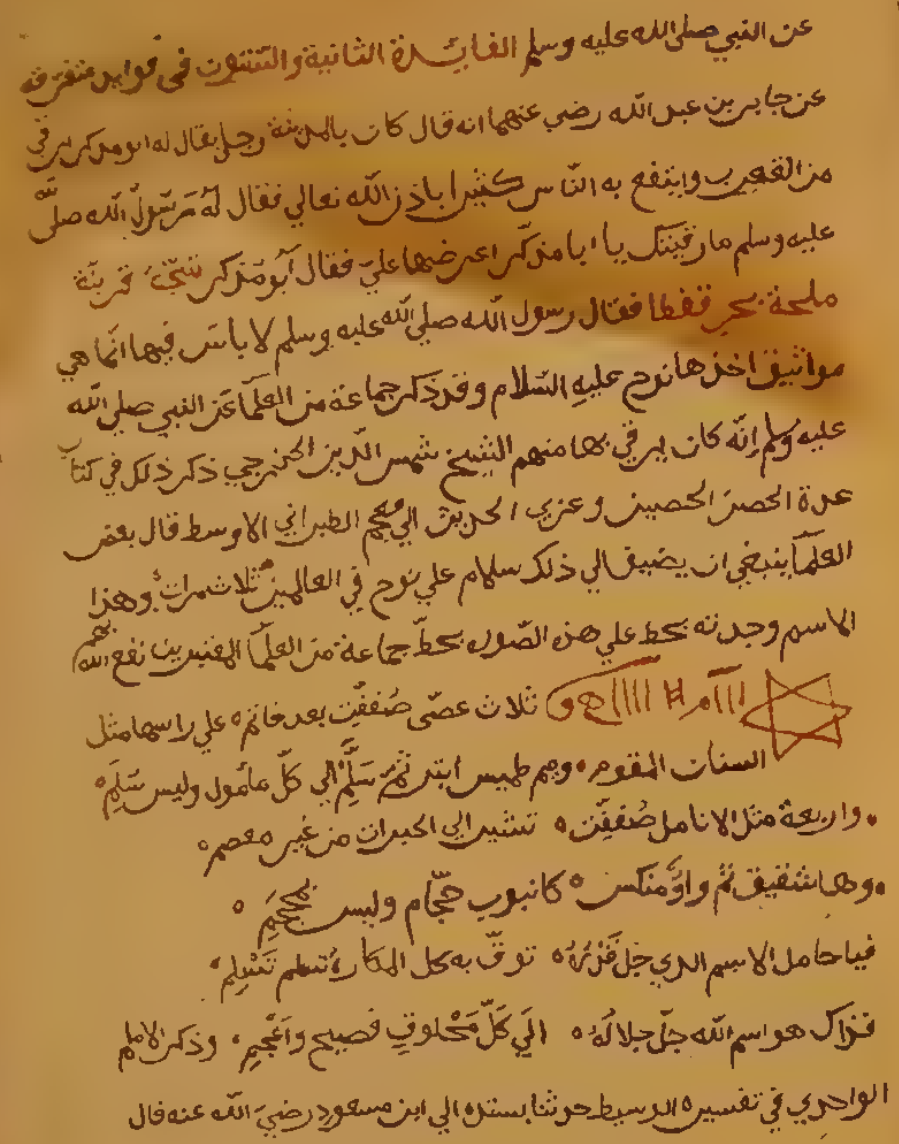 عن النبي صلى الله عليه وسلم الفايدة الثانية والستون في فوايد متفرقه
عن جابر بن عبد الله رضي عنهما انه قال كان بالمدينة رجل يقال له ابو مذكر يرقي
من العقرب وينفع به الناس كثيرا باذن الله تعالي فقال له رسول الله صلى الله
عليه وسلم ما رقيتك يا ابا مذكر اعرضها علي فقال أبو مذكر شجة قرنية
ملحة بحر قفطا فقال رسول الله صلى الله عليه وسلم لا باس فيها انما هي
مواثيق اخذها نوح عليه السلام وقد ذكر جماعة من العلما عن النبي صلى الله
عليه وسلم انه كان يرقي بها منهم الشيخ شمس الدين الجزرجي ذكر ذلك في كتاب
عدة الحصن الحصين وعزي الحديث الي معجم الطبراني الاوسط قال بعض
العلما ينبغي ان يضيف الي ذلك سلام علي نوح في العالمين ثلاث مرات وهذا
الاسم وجدته بخط علي هذه الصوره بخط جماعة من العلما المفيدين نفع الله بهم
ثلاث عصي صففت بعد خاتم علي راسها مثل
السنان المقوم وميم طميس ابتر ثم سلم الي كل مامول وليس سلم
واربعة مثل الانامل صففت تشير الي الخيرات من غير معصم
وها شقيق ثم واو منكس كانبوب حجام وليس بمحجم
فيا حامل الاسم الذي جل قدره توق به كل المكاره تسلم
فذاك هو اسم الله جل جلاله الي كل مخلوق فصيح واعجم وذكر الامام
الواحدي في تفسيره الوسيط حدثنا بسنده الي ابن مسعود رضي الله عنه قال